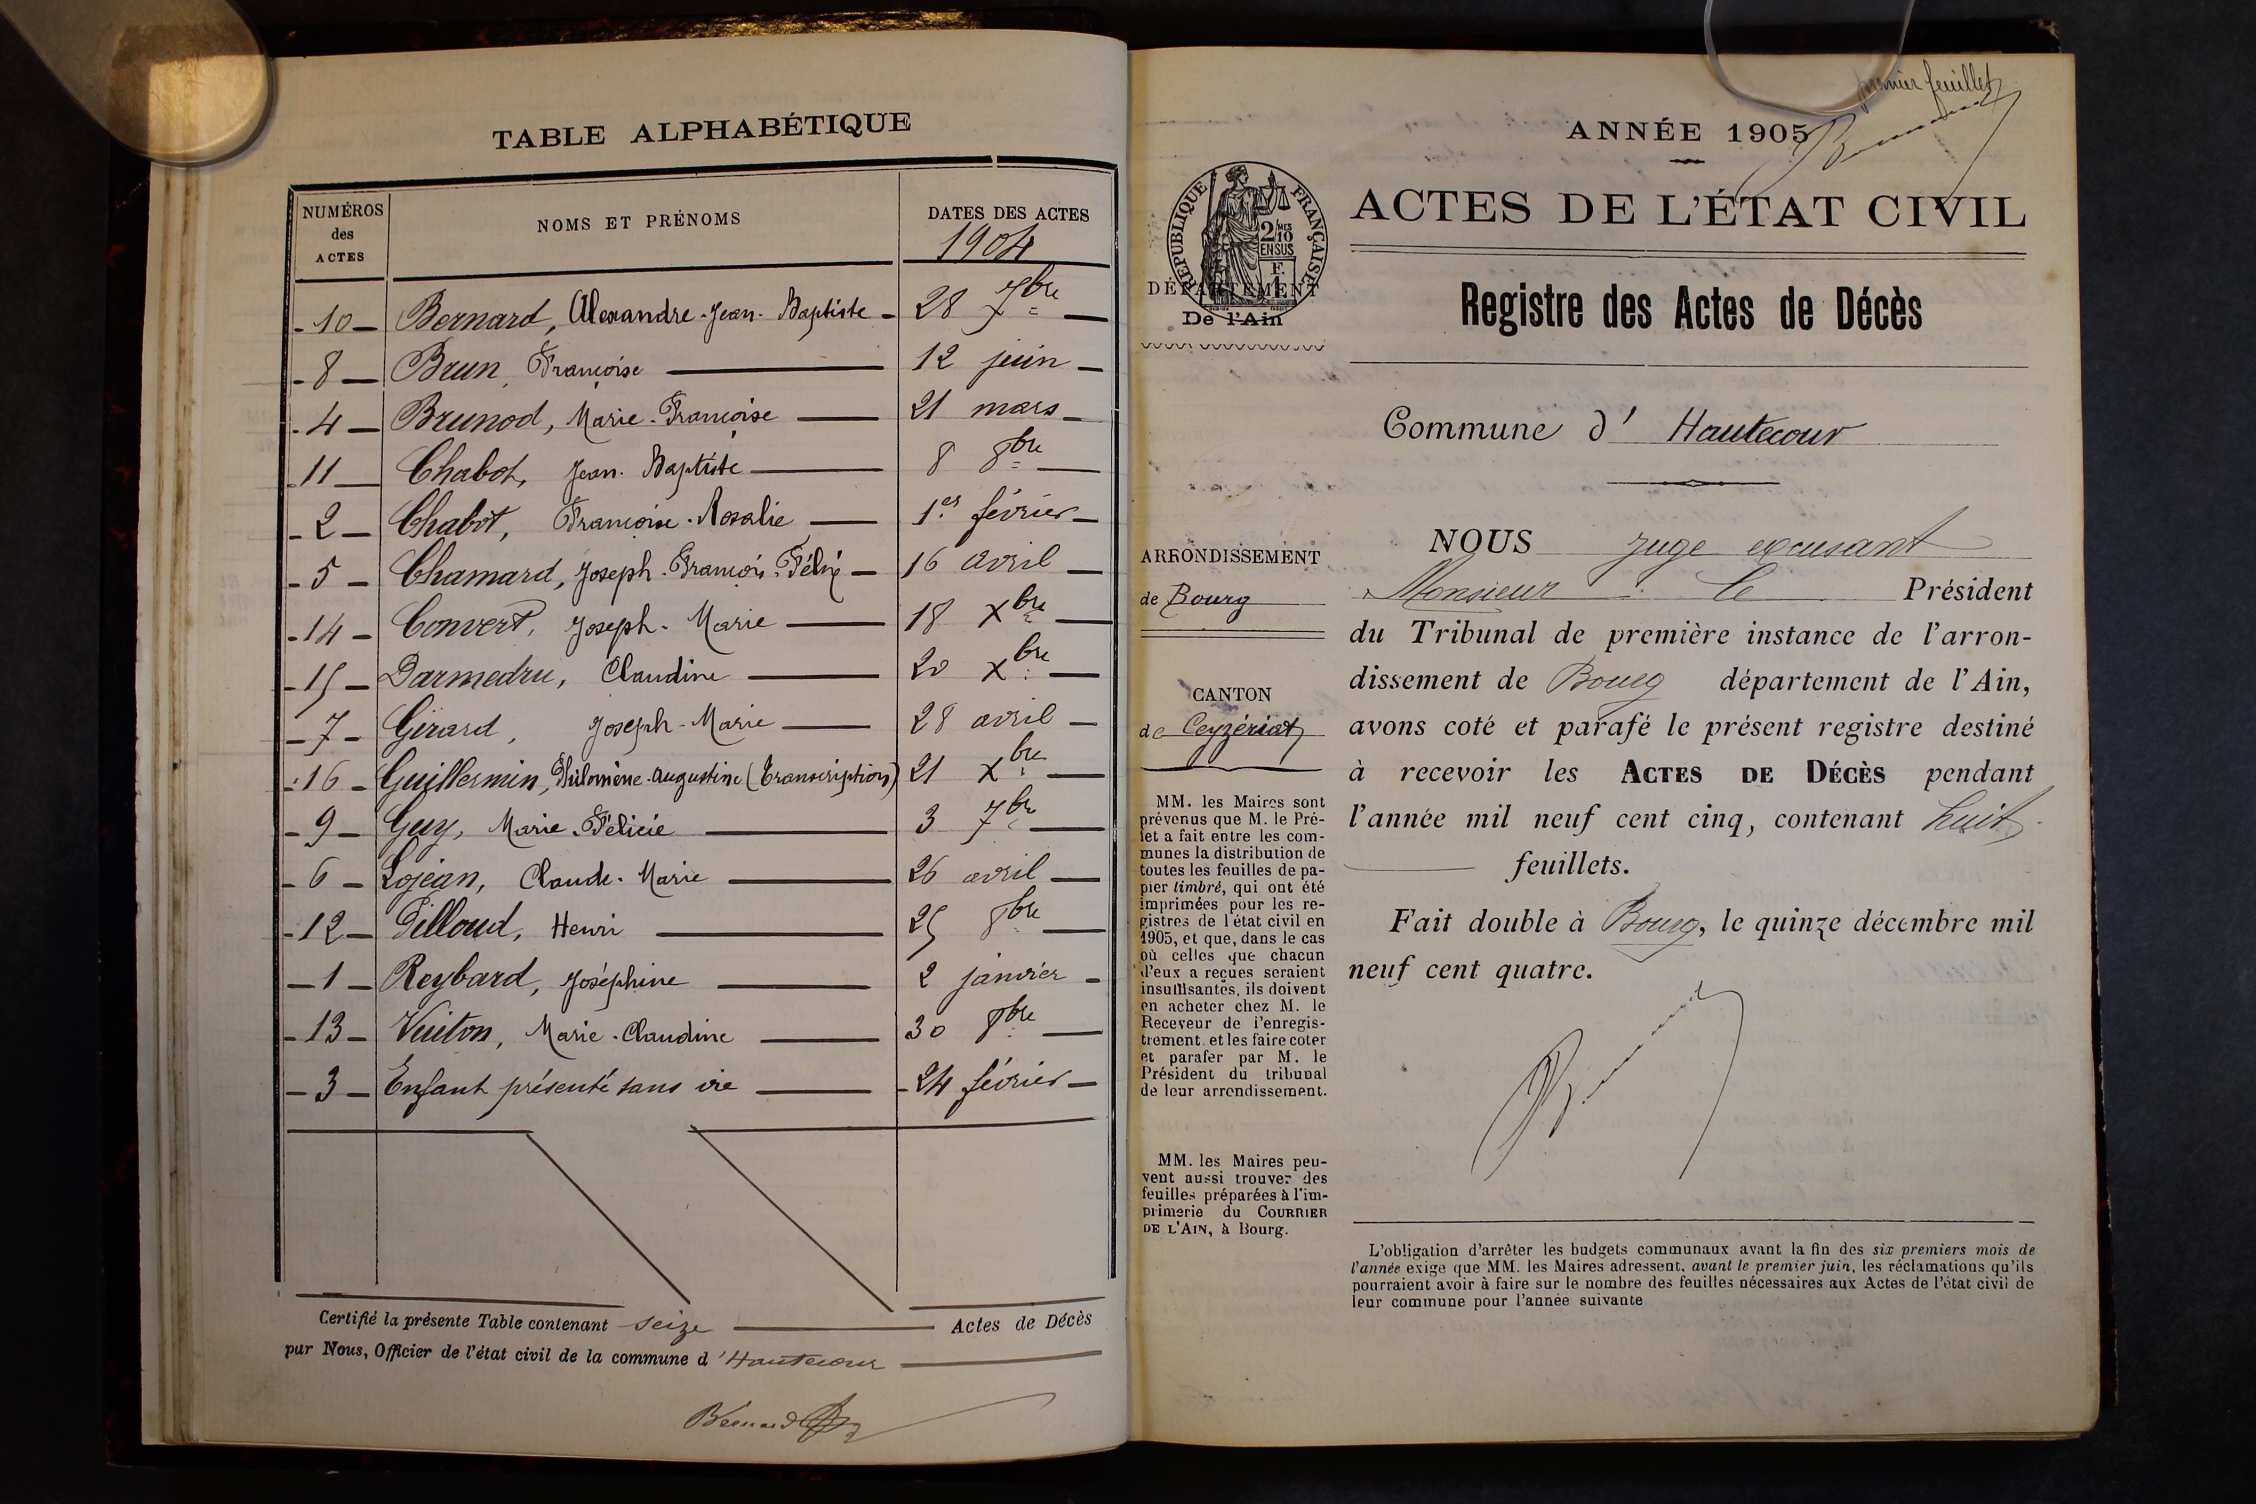 TABLE ALPHABÉTIQUE
NUMÉROS des ACTES
NOMS ET PRÉNOMS
DATES DES ACTES
1904
- 10 - Bernard, Alexandre-Jean-Baptiste - 28 7bre -
- 8 - Brun, Françoise - 12 juin -
- 4 - Brunod, Marie-Françoise - 21 mars -
- 11 - Chabot, Jean-Baptiste - 8 8bre -
- 2 - Chabot, Françoise-Rosalie - 1er février -
- 5 - Chamard, Joseph-François-Félix - 16 avril -
- 14 - Convert, Joseph-Marie - 18 Xbre -
- 15 - Darmedru, Claudine - 20 Xbre -
- 7 - Girard, Joseph-Marie - 28 avril -
- 16 - Guillermin, Philomène-Augustine (Transcription) 21 Xbre -
- 9 - Guy, Marie-Félicie - 3 7bre -
- 6 - Lojean, Claude-Marie - 26 avril -
- 12 - Pilloud, Henri - 25 8bre -
- 1 - Reybard, Joséphine - 2 janvier -
- 13 - Vuiton, Marie-Claudine - 30 8bre -
- 3 - Enfant présenté sans vie - 24 février -
Certifié la présente Table contenant seize Actes de Décès
par Nous, Officier de l'état civil de la commune d'Hautecour
Bernard
premier feuillet
ANNÉE 1905
ACTES DE L'ÉTAT CIVIL
RÉPUBLIQUE FRANÇAISE
2/10 MES
EN SUS
F.
1
DÉPARTEMENT
De l'Ain
Registre des Actes de Décès
Commune d'Hautecour
ARRONDISSEMENT
de Bourg
CANTON
de Ceyzériat
MM. les Maires sont
prévenus que M. le Pré-
fet a fait entre les com-
munes la distribution de
toutes les feuilles de pa-
pier timbré, qui ont été
imprimées pour les re-
gistres de l'état civil en
1905, et que, dans le cas
où celles que chacun
d'eux a reçues seraient
insuffisantes, ils doivent
en acheter chez M. le
Receveur de l'enregis-
trement et les faire coter
et parafer par M. le
Président du tribunal
de leur arrondissement.
MM. les Maires peu-
vent aussi trouver des
feuilles préparées à l'im-
primerie du COURRIER
DE L'AIN, à Bourg.
NOUS juge excusant
Monsieur le Président
du Tribunal de première instance de l'arron-
dissement de Bourg département de l'Ain,
avons coté et parafé le présent registre destiné
à recevoir les ACTES DE DÉCÈS pendant
l'année mil neuf cent cinq, contenant huit
feuillets.
Fait double à Bourg, le quinze décembre mil
neuf cent quatre.
L'obligation d'arrêter les budgets communaux avant la fin des six premiers mois de
l'année exige que MM. les Maires adressent, avant le premier juin, les réclamations qu'ils
pourraient avoir à faire sur le nombre des feuilles nécessaires aux Actes de l'état civil de
leur commune pour l'année suivante